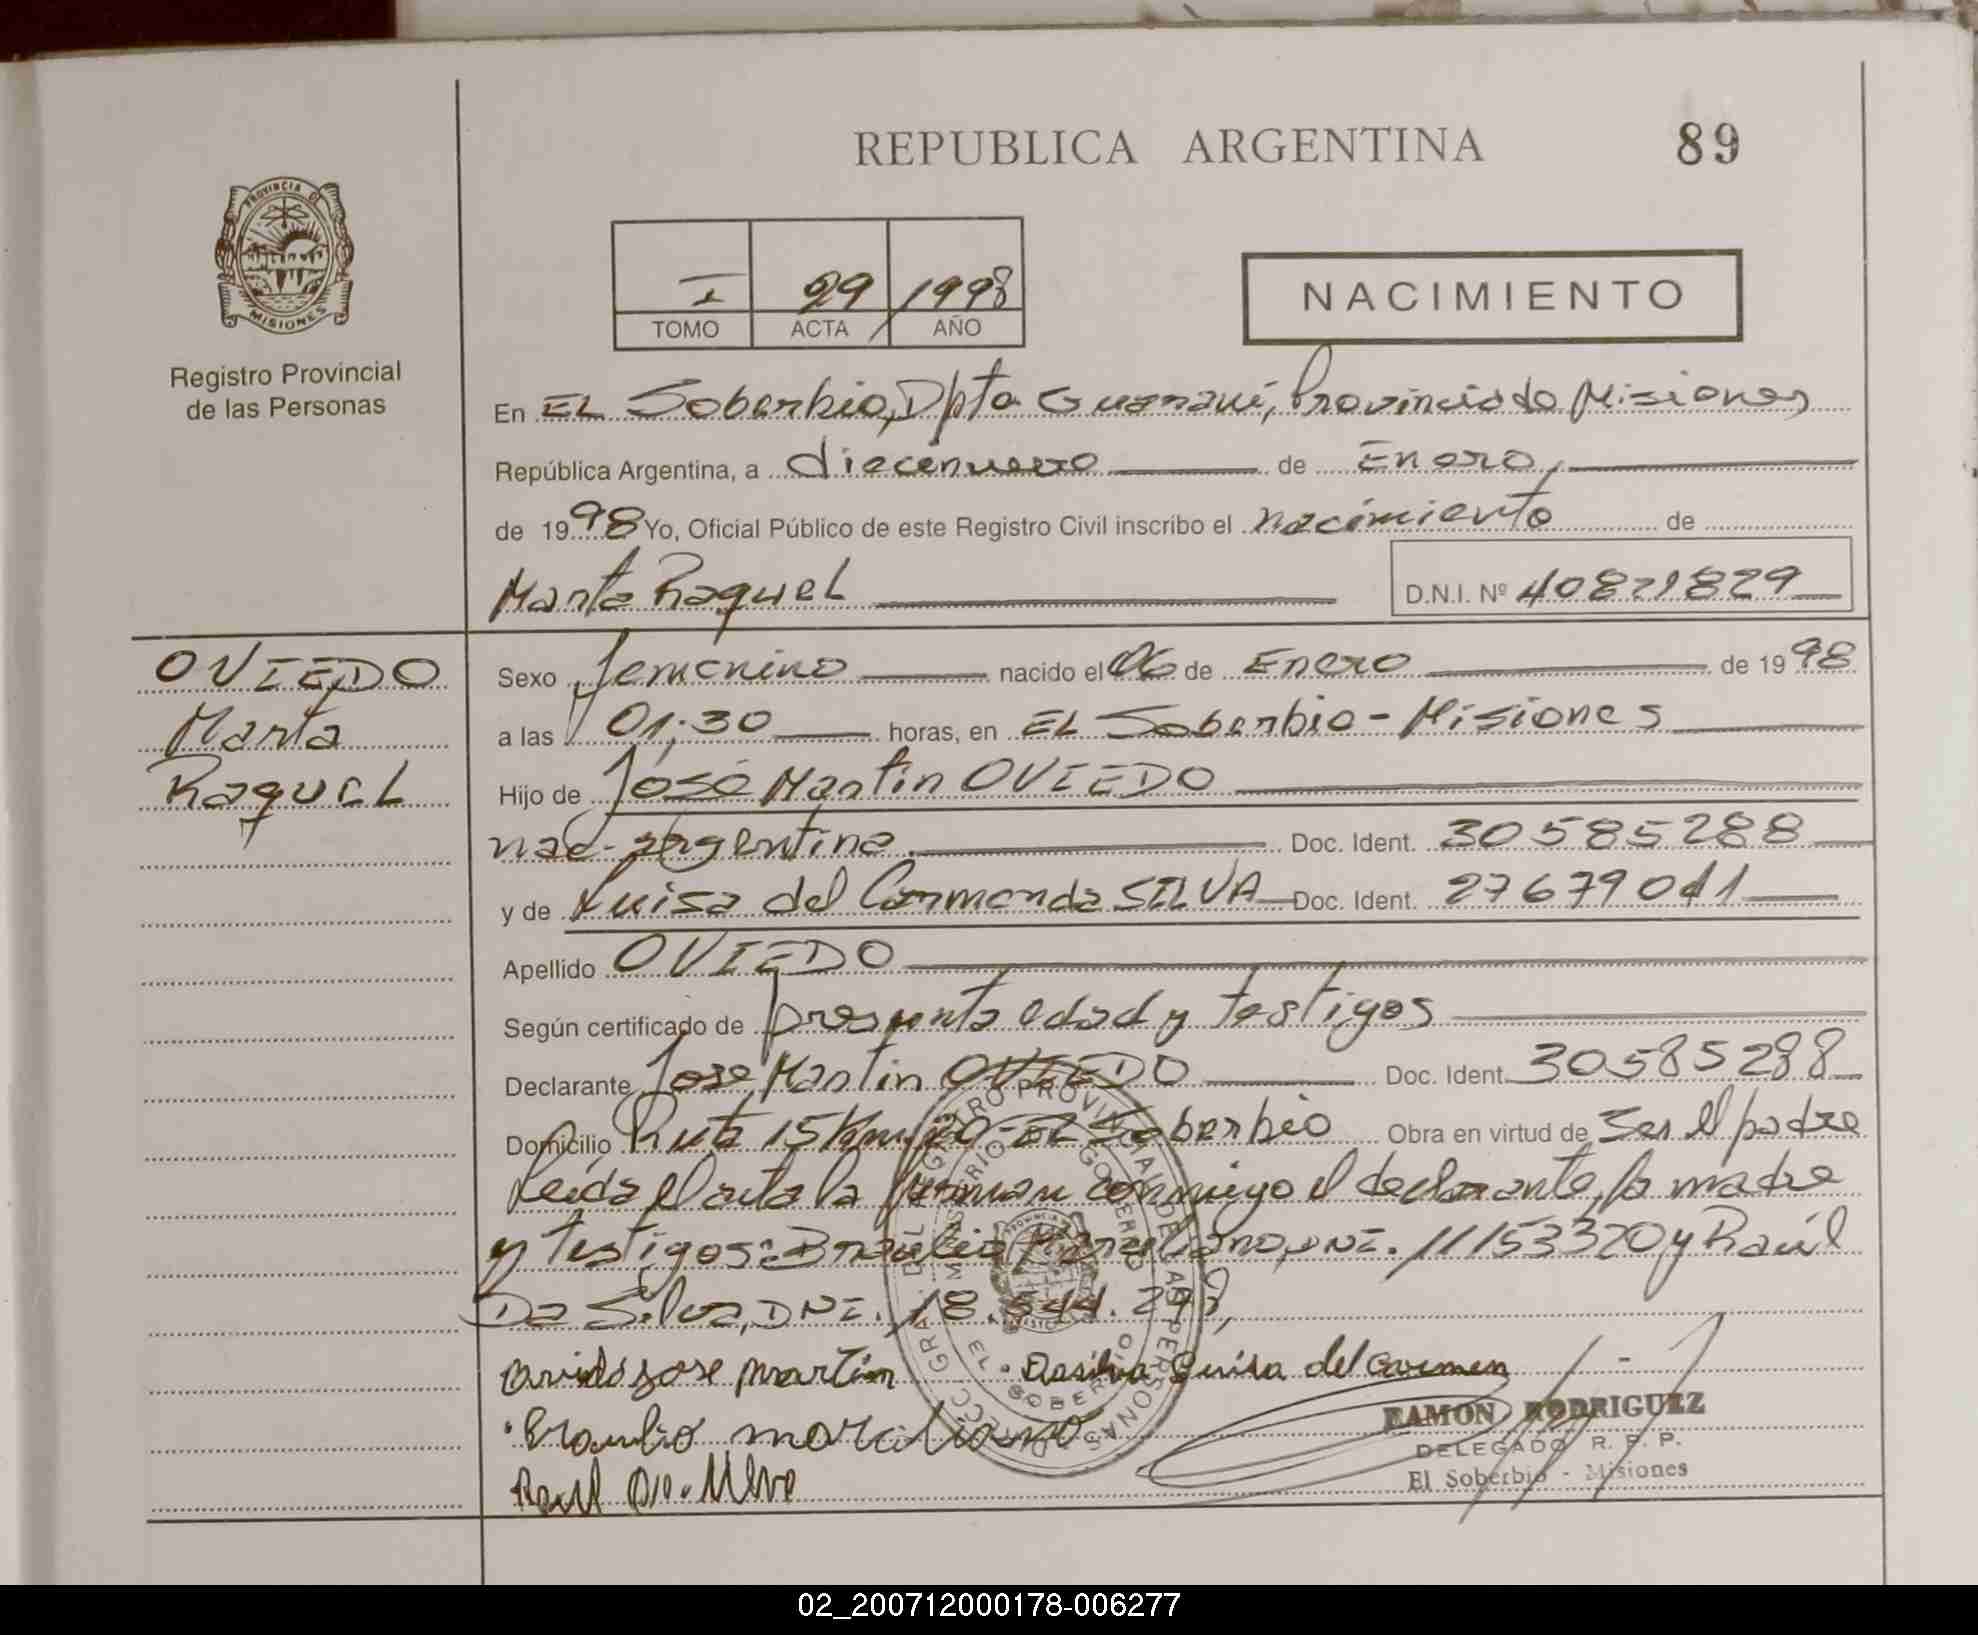 REPUBLICA ARGENTINA
89
PROVINCIA DE
MISIONES
Registro Provincial
de las Personas
I 29 1998
TOMO ACTA AÑO
NACIMIENTO
En EL Soberbio, Dpto Guaraní, Provincia de Misiones
República Argentina, a diecenueve de Enero,
de 1998 Yo, Oficial Público de este Registro Civil inscribo el nacimiento de
Marta Raquel D.N.I. Nº 40821829
OVIEDO
Marta
Raquel
Sexo femenino nacido el 06 de Enero de 1998
a las 01:30 horas, en EL Soberbio - Misiones
Hijo de José Martin OVIEDO
nac. argentina. Doc. Ident. 30585288
y de Luisa del Carmen da SILVA Doc. Ident. 27679041
Apellido OVIEDO
Según certificado de presunta edad y testigos
Declarante Jose Martin OVIEDO Doc. Ident. 30585288
Domicilio Ruta 15 Km 20 - EL Soberbio Obra en virtud de Ser el padre
Leida el acta la firman conmigo el declarante, la madre
y testigos: Braulio Marciliano, DNI. 11153320 y Raúl
Da Silva, DNI. 18.544.298,
oviedo jose martin Dasilva Luisa del Carmen
Braulio marciliano
Raul Da Silva
RAMON RODRIGUEZ
DELEGADO R. P. P.
El Soberbio - Misiones
02_200712000178-006277